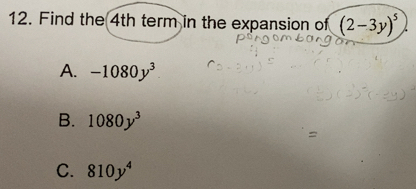 12. Find the 4th term in the expansion of (2-3y)⁵.
pengembangan
A. -1080y³
B. 1080y³
=
C. 810y⁴